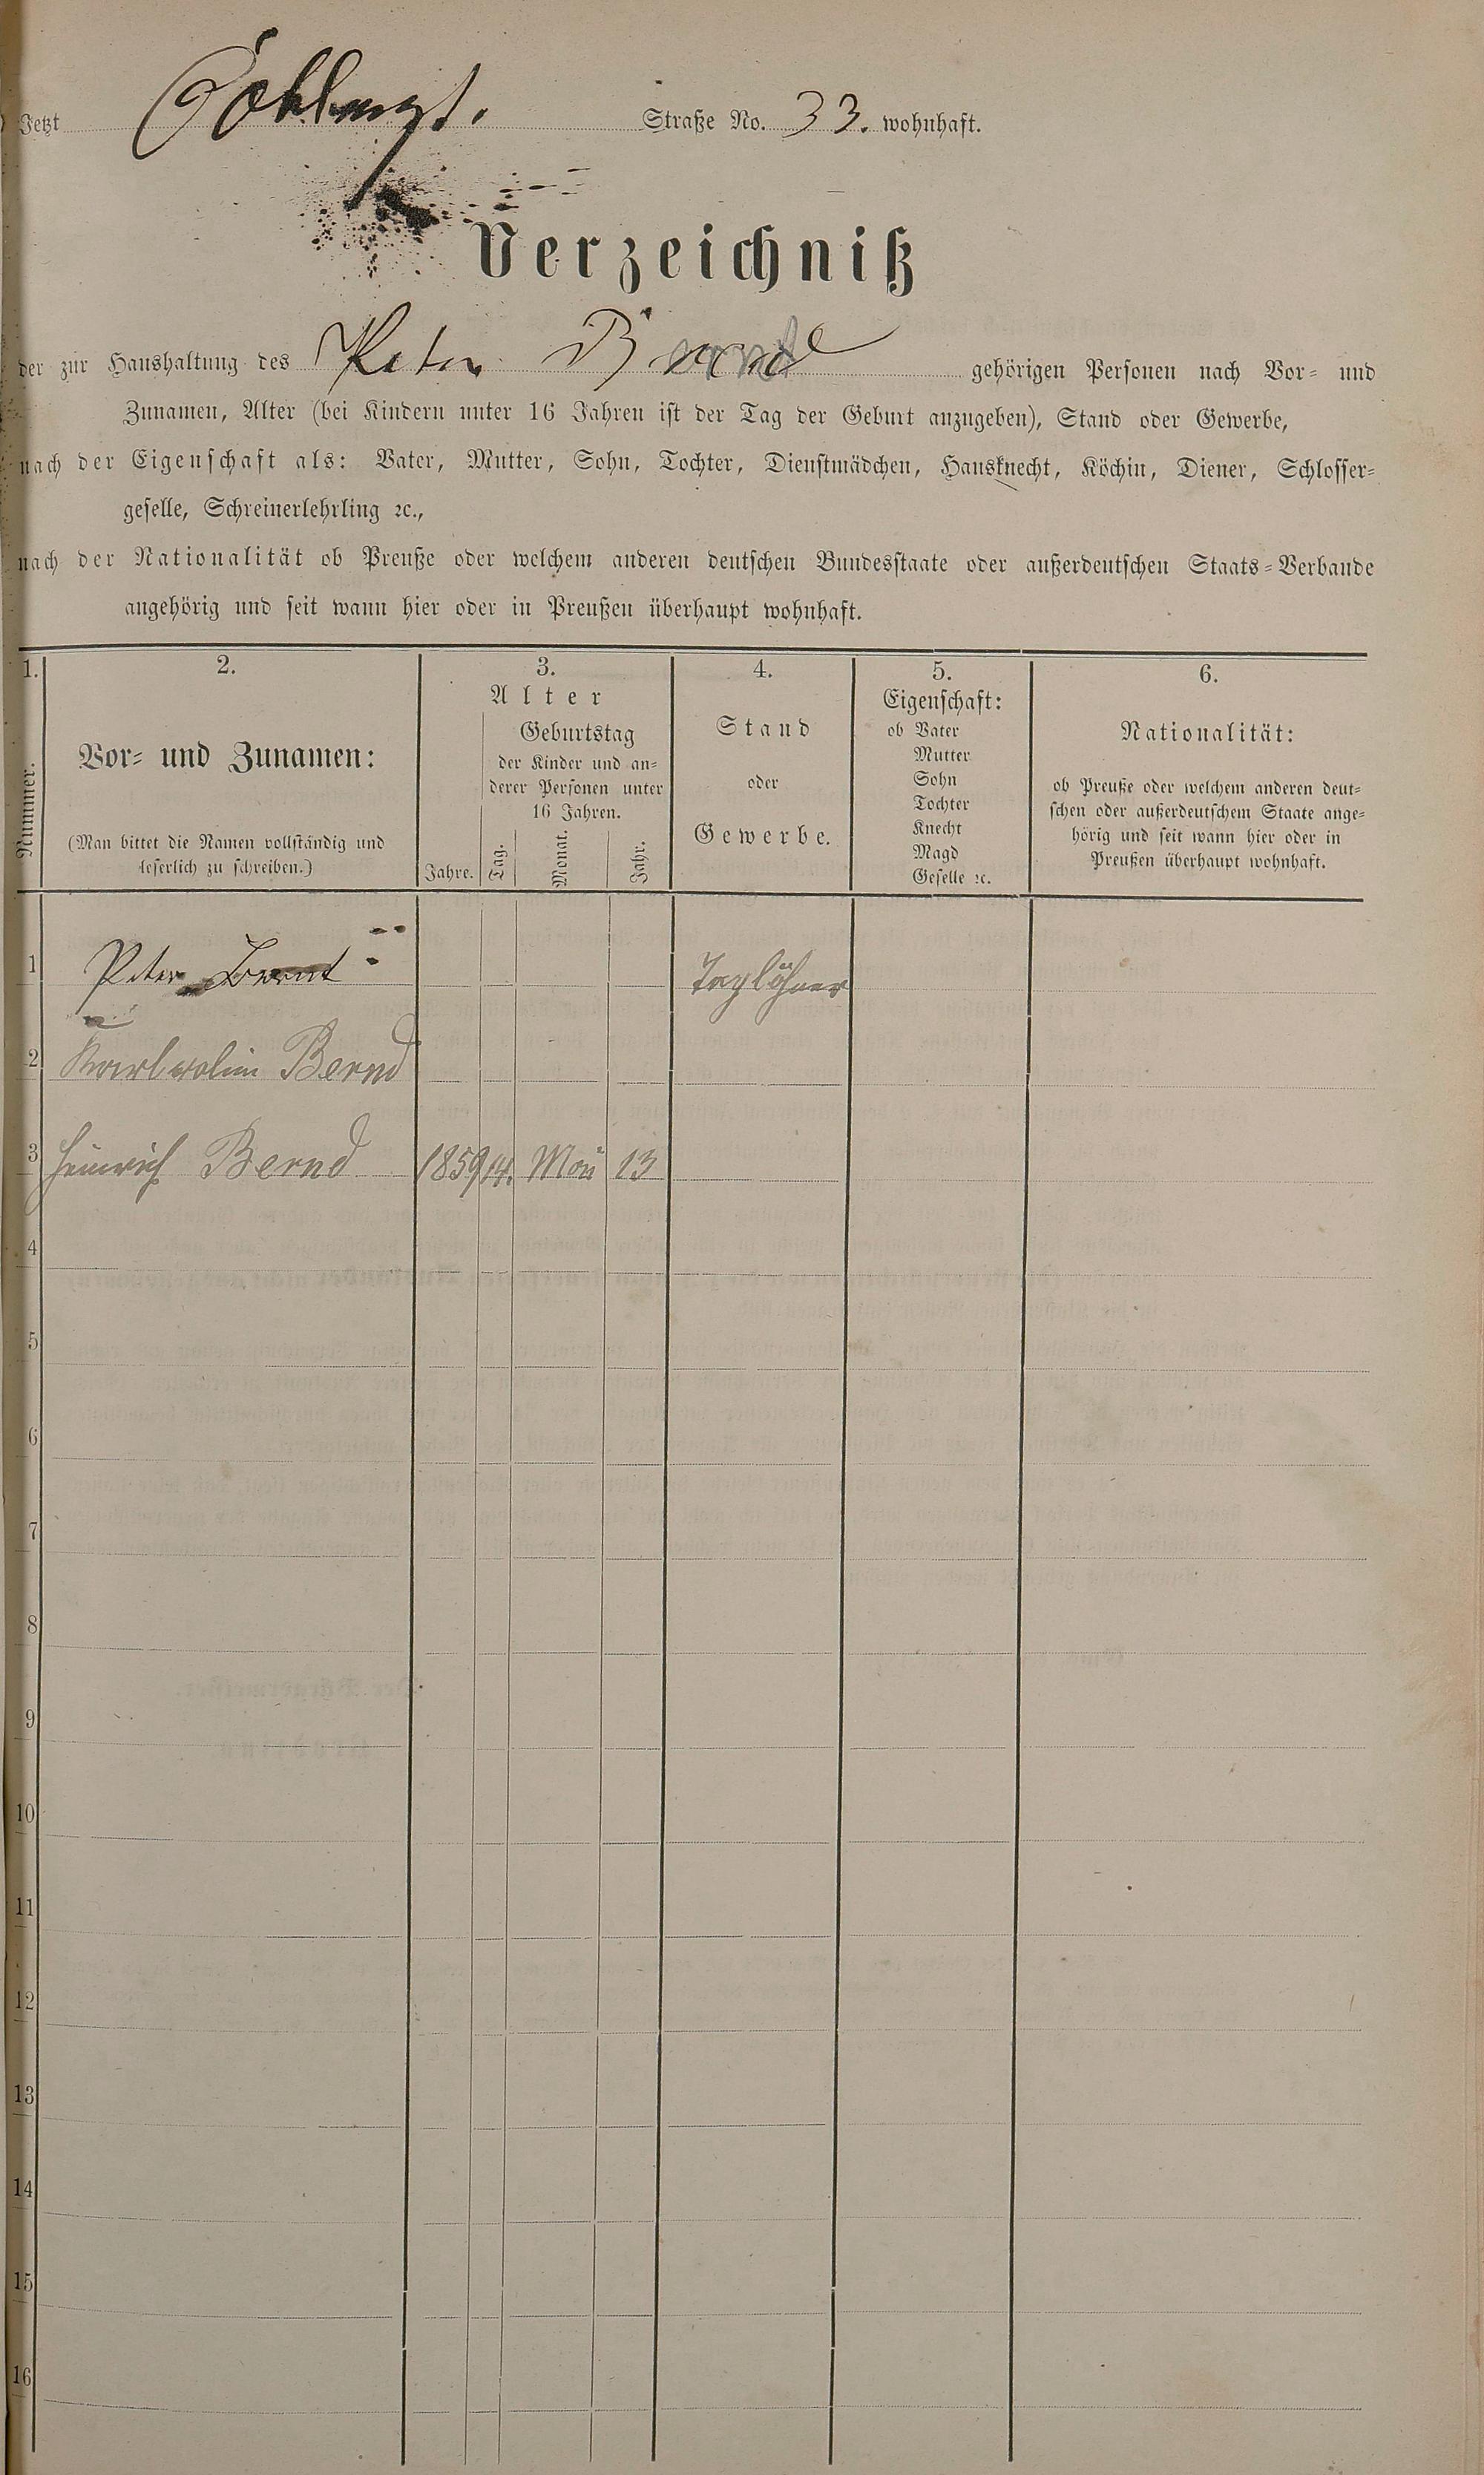 Jetzt Straße No. 33. wohnhaft.
Verzeichniß
der zur Haushaltung des Peter Bernd gehörigen Personen nach Vor- und
Zunamen, Alter (bei Kindern unter 16 Jahren ist der Tag der Geburt anzugeben), Stand oder Gewerbe,
nach der Eigenschaft als: Vater, Mutter, Sohn, Tochter, Dienstmädchen, Hausknecht, Köchin, Diener, Schlosser-
geselle, Schreinerlehrling ꝛc.,
nach der Nationalität ob Preuße oder welchem anderen deutschen Bundesstaate oder außerdeutschen Staats-Verbande
angehörig und seit wann hier oder in Preußen überhaupt wohnhaft.
1.
Nummer.
2.
Vor- und Zunamen:
(Man bittet die Namen vollständig und
leserlich zu schreiben.)
3.
Alter
Jahre.
Geburtstag
der Kinder und an-
derer Personen unter
16 Jahren.
Tag.
Monat.
Jahr.
4.
Stand
oder
Gewerbe.
5.
Eigenschaft:
ob Vater
Mutter
Sohn
Tochter
Knecht
Magd
Geselle ꝛc.
6.
Nationalität:
ob Preuße oder welchem anderen deut-
schen oder außerdeutschem Staate ange-
hörig und seit wann hier oder in
Preußen überhaupt wohnhaft.
1 Peter Bernt Taglöhner
2 Bernd
3 Heinrich Bernd 1859 14. Mai 13
4
5
6
7
8
9
10
11
12
13
14
15
16